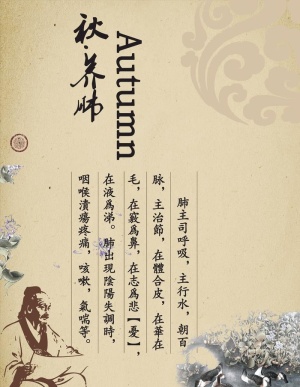 秋·养肺
Autumn
肺主司呼吸，主行水，朝百
脉，主治節，在體合皮，在華在
毛，在竅為鼻，在志為悲【憂】，
在液為涕。肺出現陰陽失調時，
咽喉潰瘍疼痛，咳嗽，氣喘等。